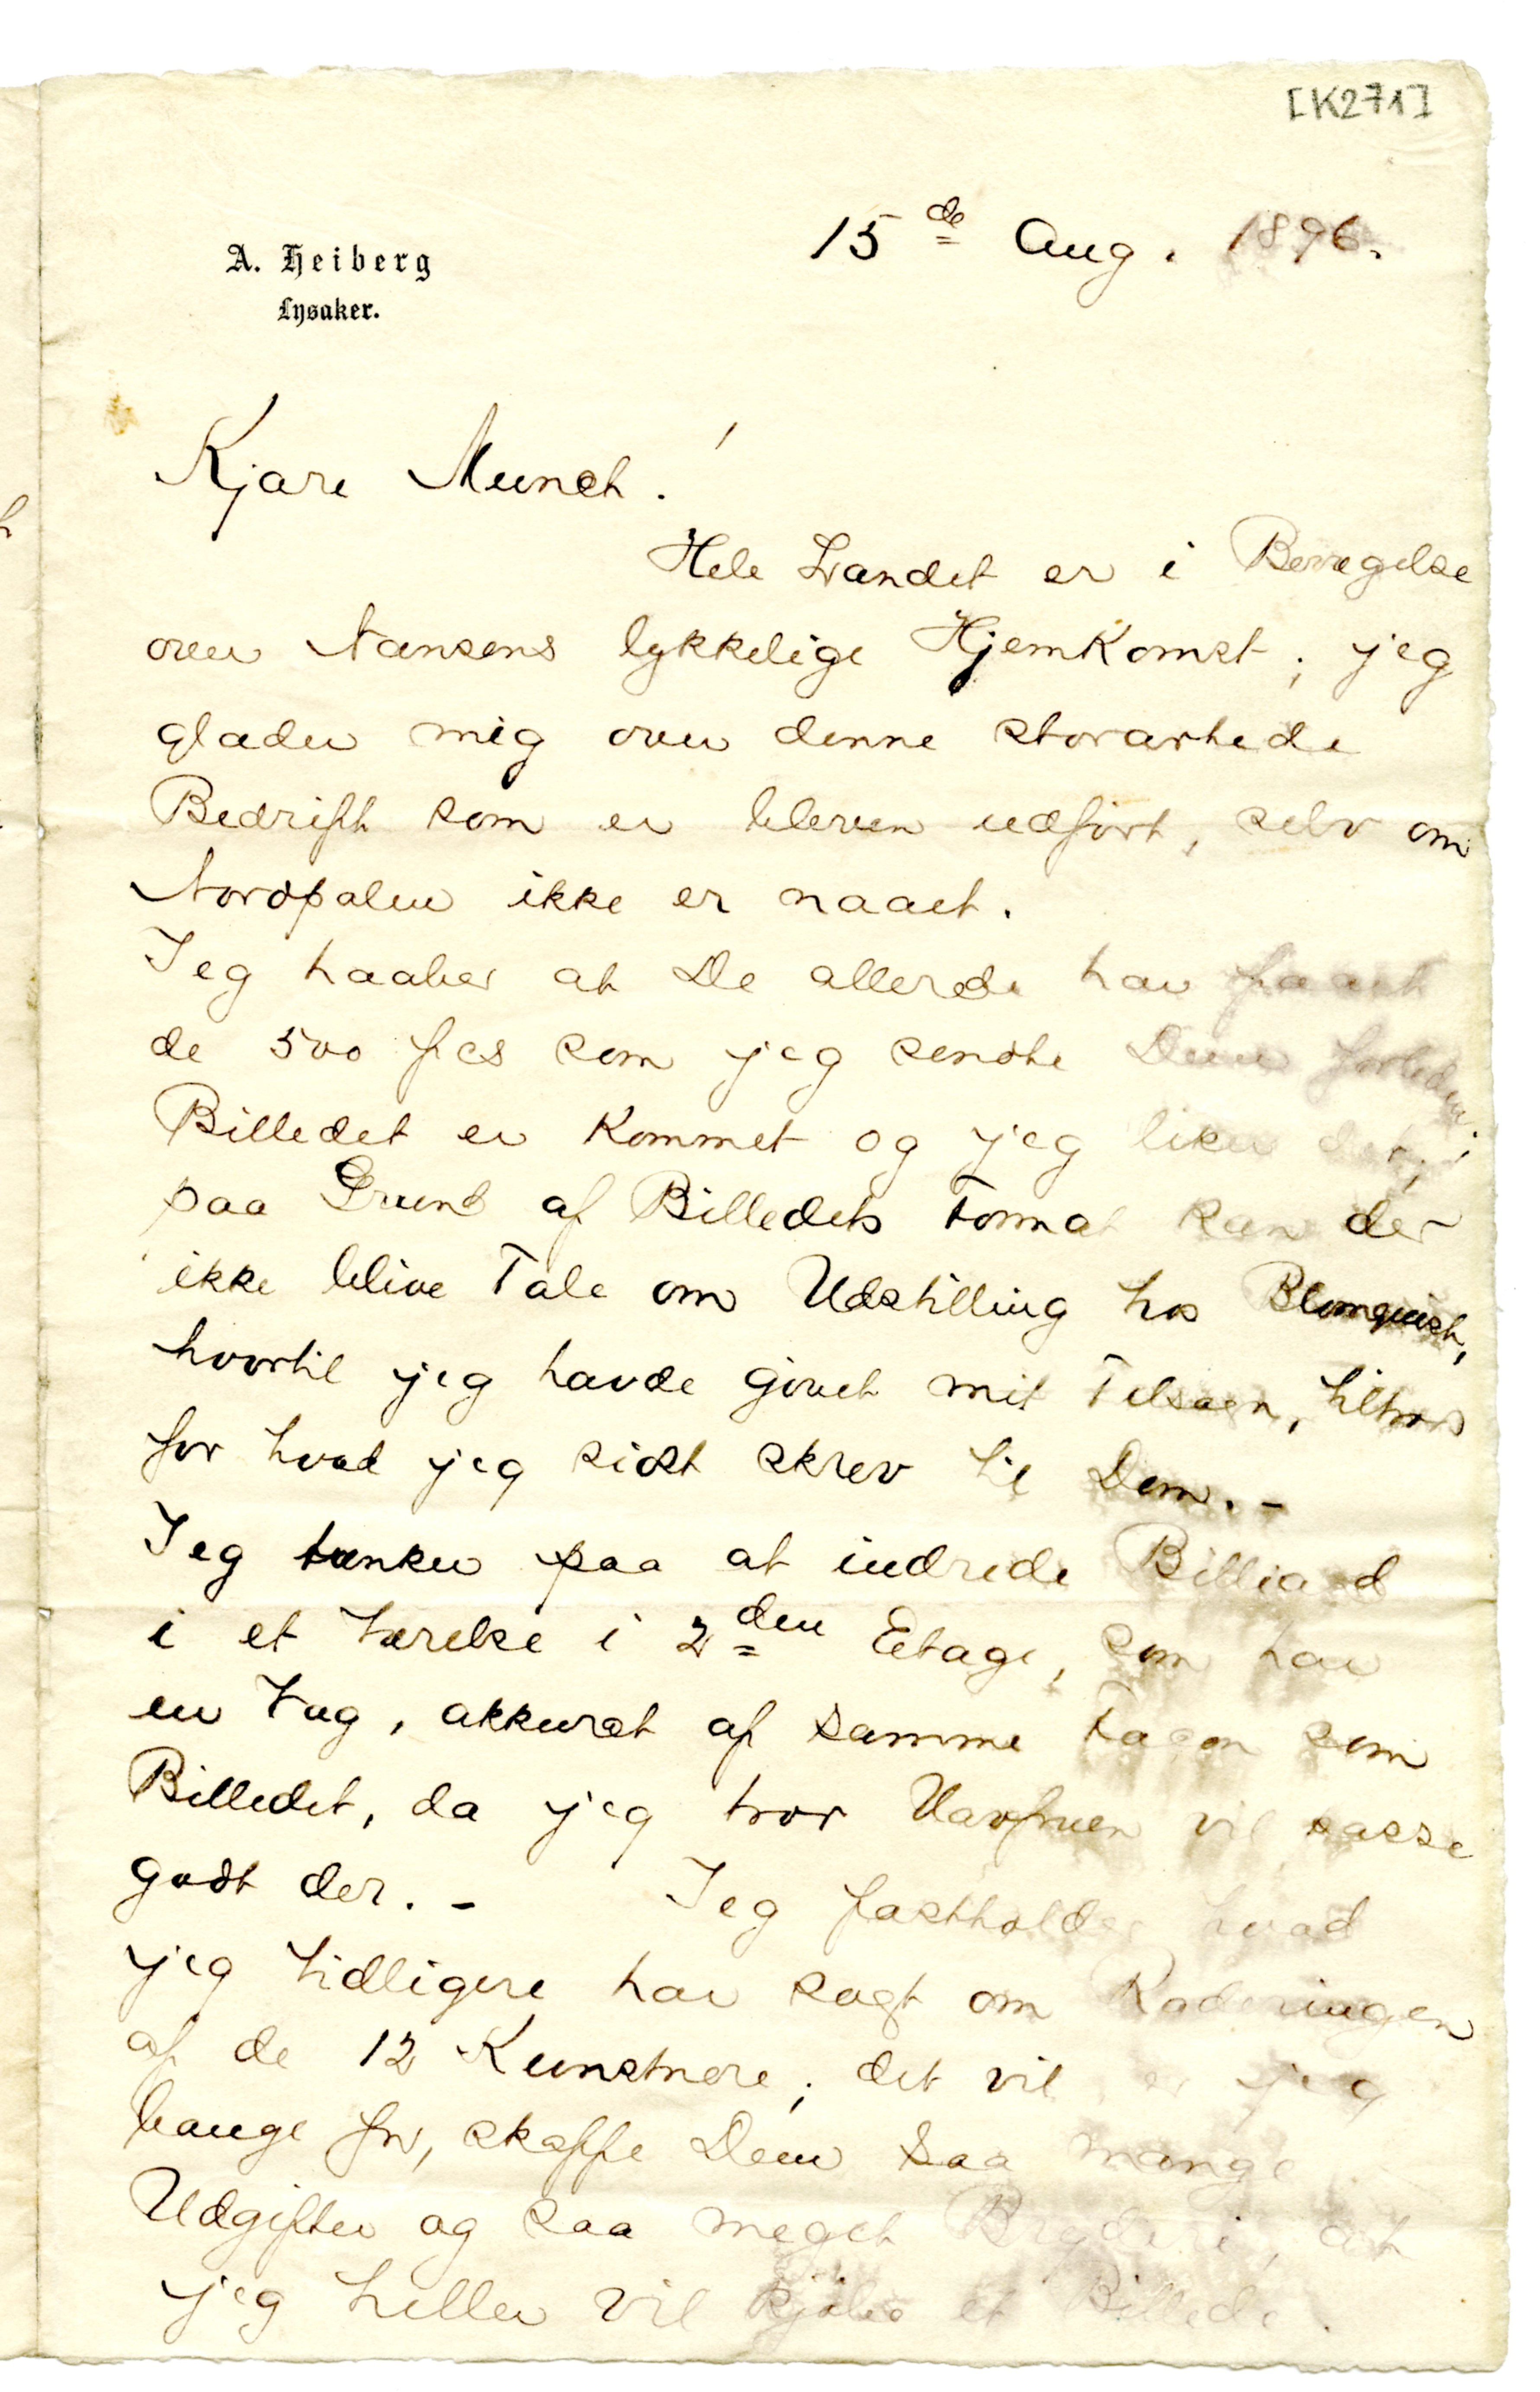 [K271]
15 de Aug. 1896.
A. Heiberg
Lysaker.
Kjære Munch!
Hele Landet er i Bevægelse
over Nansens lykkelige Hjemkomst; jeg
glæder mig over denne storartede
Bedrift som er bleven udført, selv om
Nordpolen ikke er naaet.
Jeg haaber at De allerede har faaet
de 500 fcs som jeg sendte Dem forleden;
Billedet er kommet og jeg liker det;
paa Grund af Billedets Format kan der
ikke blive Tale om Udstilling hos Blomquist,
hvortil jeg havde givet mit Tilsagn, tiltrods
for hvad jeg sidst skrev til Dem. -
Jeg tænker paa at indrede Billiard
i et Værelse i 2 den Etage, som har
en Væg, akkurat af samme Façon som
Billedet, da jeg tror Havfruen vil passe
godt der. - Jeg fastholder hvad
jeg tidligere har sagt om Raderingen
af de 12 Kunstnere; det vil er jeg
bange for, skaffe Dem saa mange
Udgifter og saa meget Bryderi, at
jeg heller vil kjøbe et Billede.